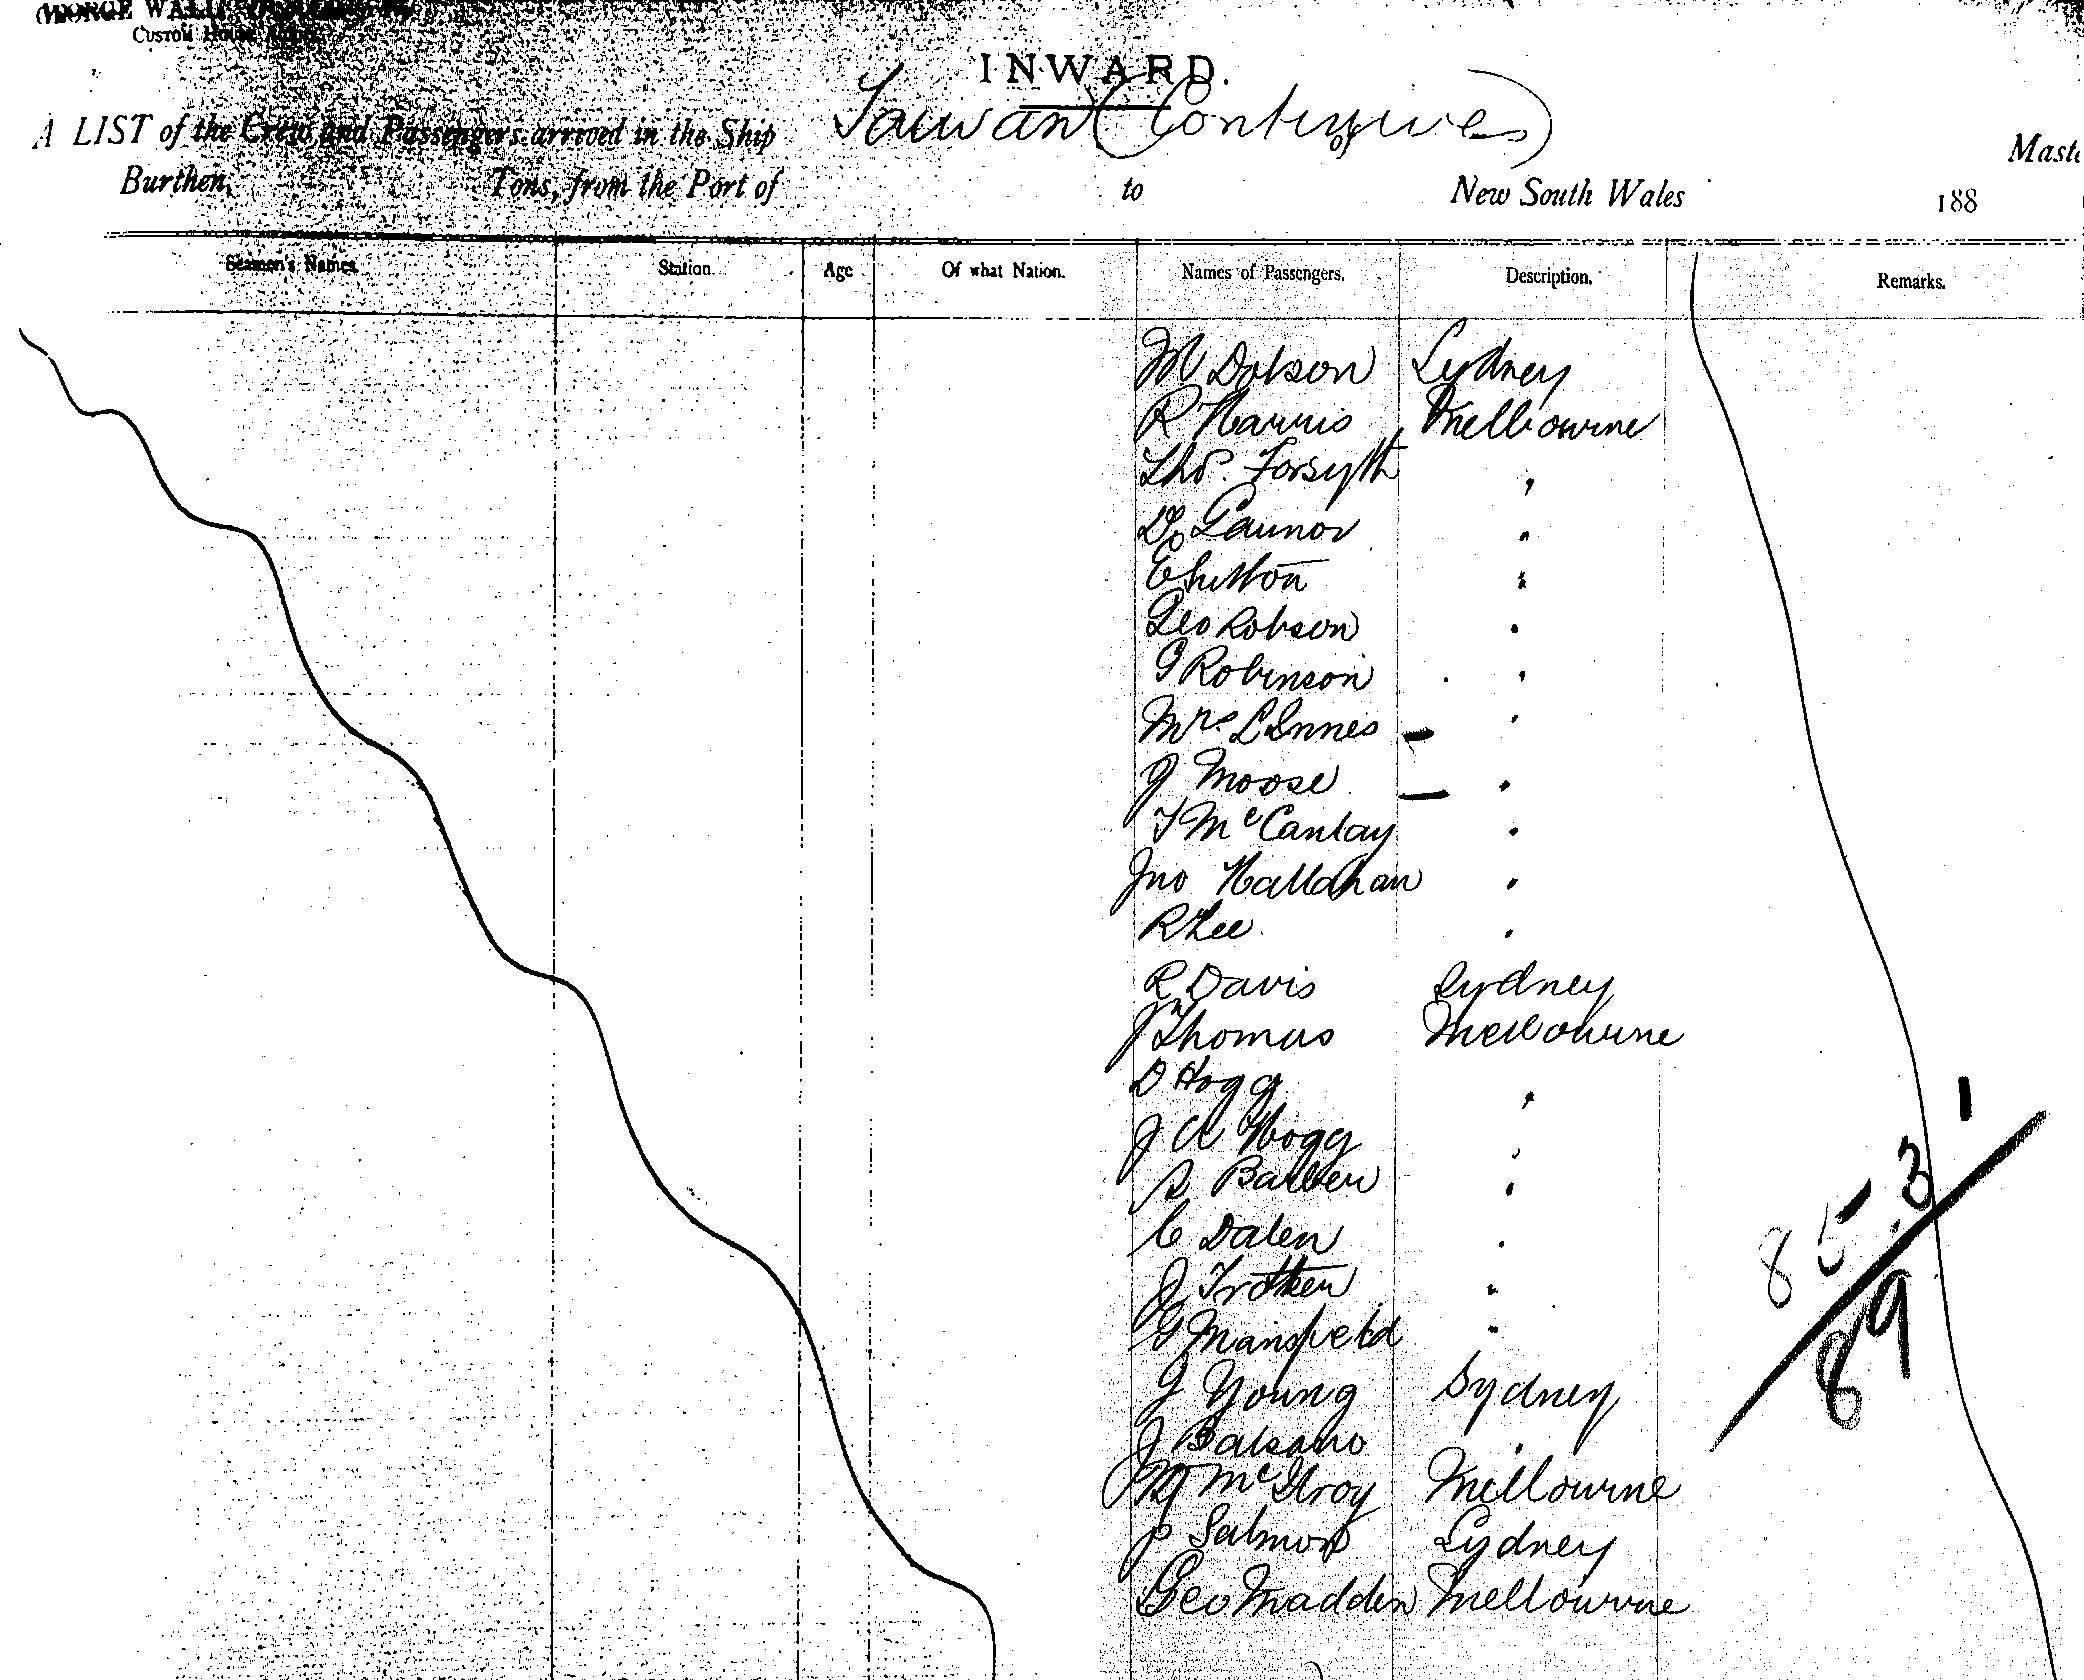 GEORGE WALL
CUSTOM HOUSE
INWARD.
A LIST of the Crew and Passengers arrived in the Ship Tauwan (Contiynues) of Maste
Burthen, Tons, from the Port of to New South Wales 188
Seamen's Names. Station. Age Of what Nation. Names of Passengers. Description. Remarks.
M Dobson Sydney
R Harris Melbourne
Thos. Forsyth "
Gaunor "
E Sutton "
Geo Robson "
G Robinson "
Mrs L Innes "
J Moose "
T McCantay "
Jno Hallahan "
R Lee "
R Davis Sydney
J Thomas Melbourne
D Hogg "
J A Hogg "
S Barber "
C Dalen "
J Trotter "
G Mansfield "
J Young Sydney
J Balsano "
McIlroy Melbourne
P Salmon Sydney
Geo Madden Melbourne
1
85 3
89